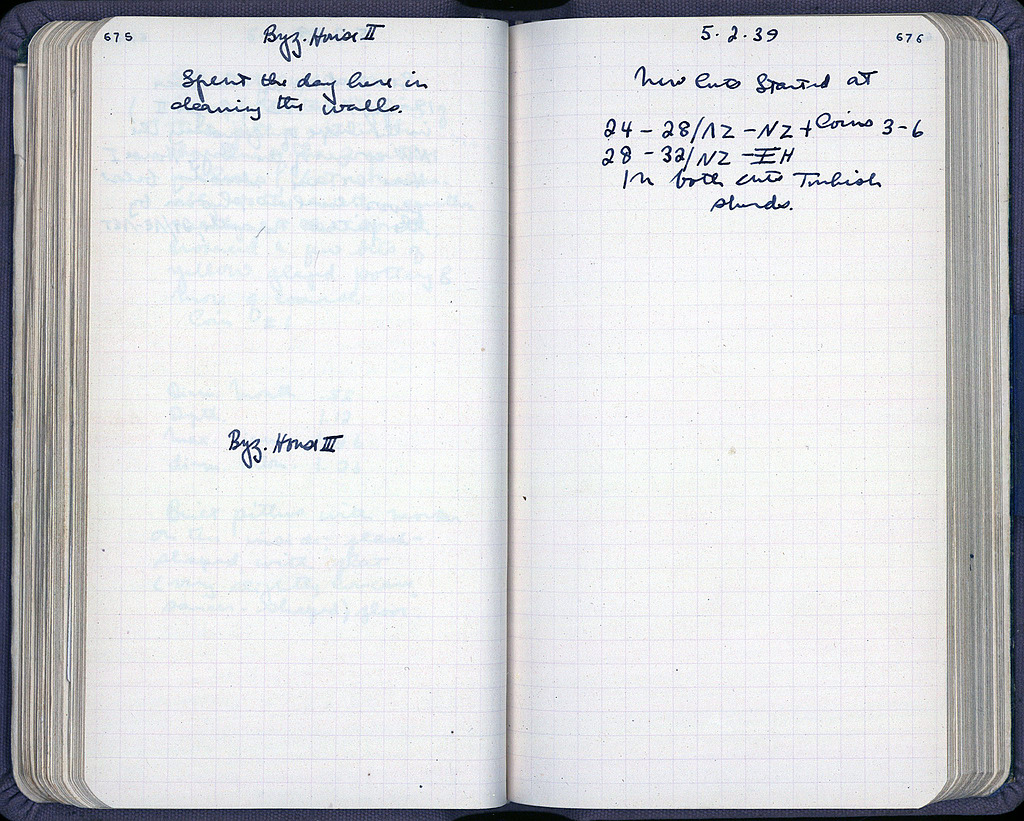 675
Byz. House II
Spent the day here in
cleaning the walls.
Byz. House III
5·2·39
676
New cuts started at
24 – 28/ΛΖ – ΝΖ + Coins 3-6
28 – 32/ΝΖ – ΞΗ
In both cuts Turkish
sherds.